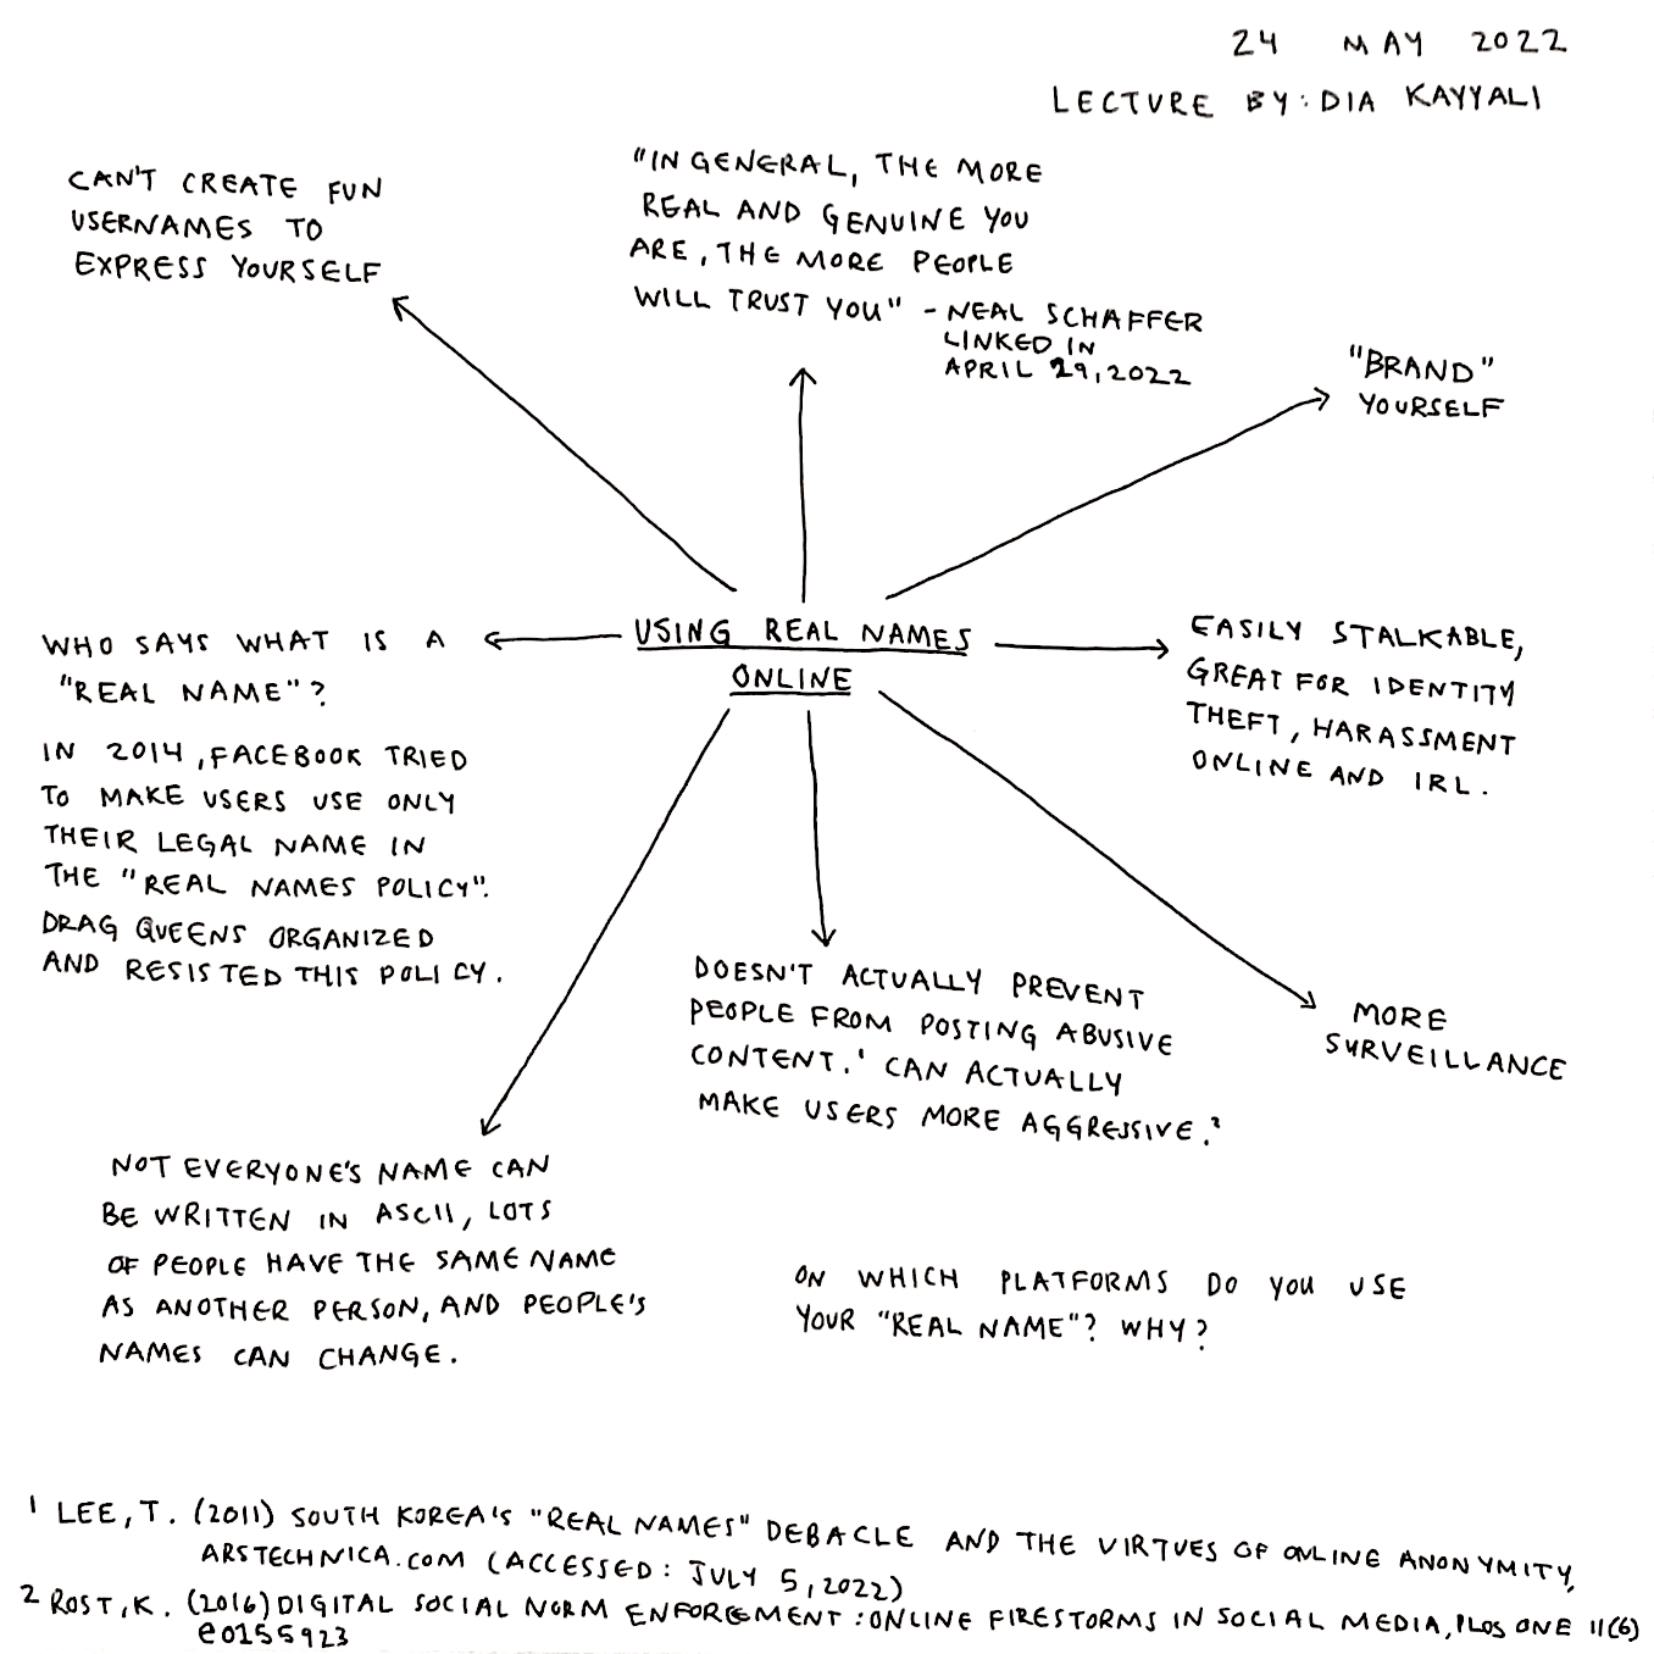 24 MAY 2022
LECTURE BY: DIA KAYYALI
CAN'T CREATE FUN
USERNAMES TO
EXPRESS YOURSELF
"IN GENERAL, THE MORE
REAL AND GENUINE YOU
ARE, THE MORE PEOPLE
WILL TRUST YOU" - NEAL SCHAFFER
LINKED IN
APRIL 29, 2022
"BRAND"
YOURSELF
USING REAL NAMES
ONLINE
WHO SAYS WHAT IS A
"REAL NAME"?
IN 2014, FACEBOOK TRIED
TO MAKE USERS USE ONLY
THEIR LEGAL NAME IN
THE "REAL NAMES POLICY".
DRAG QUEENS ORGANIZED
AND RESISTED THIS POLICY.
EASILY STALKABLE,
GREAT FOR IDENTITY
THEFT, HARASSMENT
ONLINE AND IRL.
DOESN'T ACTUALLY PREVENT
PEOPLE FROM POSTING ABUSIVE
CONTENT.¹ CAN ACTUALLY
MAKE USERS MORE AGGRESSIVE.²
MORE
SURVEILLANCE
NOT EVERYONE'S NAME CAN
BE WRITTEN IN ASCII, LOTS
OF PEOPLE HAVE THE SAME NAME
AS ANOTHER PERSON, AND PEOPLE'S
NAMES CAN CHANGE.
ON WHICH PLATFORMS DO YOU USE
YOUR "REAL NAME"? WHY?
¹ LEE, T. (2011) SOUTH KOREA'S "REAL NAMES" DEBACLE AND THE VIRTUES OF ONLINE ANONYMITY,
ARSTECHNICA.COM (ACCESSED: JULY 5, 2022)
² ROST, K. (2016) DIGITAL SOCIAL NORM ENFORCEMENT: ONLINE FIRESTORMS IN SOCIAL MEDIA, PLOS ONE 11(6)
e0155923